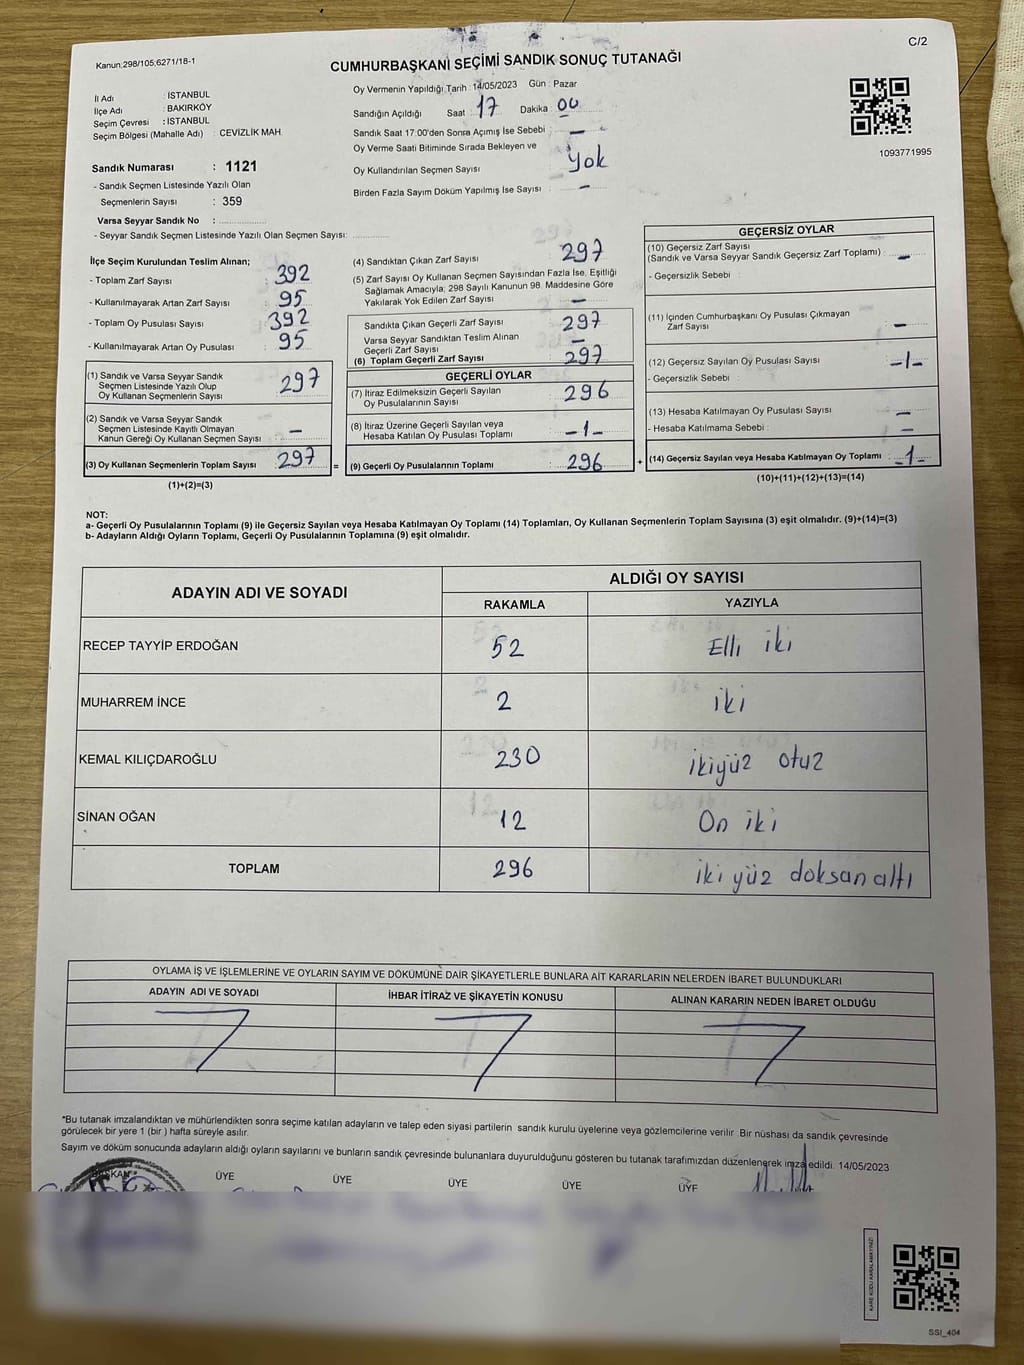 C/2
Kanun;298/105;6271/18-1
CUMHURBAŞKANI SEÇİMİ SANDIK SONUÇ TUTANAĞI
İl Adı : İSTANBUL
İlçe Adı : BAKIRKÖY
Seçim Çevresi : İSTANBUL
Seçim Bölgesi (Mahalle Adı) : CEVİZLİK MAH.
Oy Vermenin Yapıldığı Tarih : 14/05/2023 Gün : Pazar
Sandığın Açıldığı Saat : 17 Dakika : 00
Sandık Saat 17:00'den Sonsa Açımış İse Sebebi : —
Oy Verme Saati Bitiminde Sırada Bekleyen ve
Oy Kullandırılan Seçmen Sayısı : Yok
Birden Fazla Sayım Döküm Yapılmış İse Sayısı : —
1093771995
Sandık Numarası : 1121
- Sandık Seçmen Listesinde Yazılı Olan
Seçmenlerin Sayısı : 359
Varsa Seyyar Sandık No :
- Seyyar Sandık Seçmen Listesinde Yazılı Olan Seçmen Sayısı:
İlçe Seçim Kurulundan Teslim Alınan;
- Toplam Zarf Sayısı : 392
- Kullanılmayarak Artan Zarf Sayısı : 95
- Toplam Oy Pusulası Sayısı : 392
- Kullanılmayarak Artan Oy Pusulası : 95
(1) Sandık ve Varsa Seyyar Sandık
Seçmen Listesinde Yazılı Olup
Oy Kullanan Seçmenlerin Sayısı : 297
(2) Sandık ve Varsa Seyyar Sandık
Seçmen Listesinde Kayıtlı Olmayan
Kanun Gereği Oy Kullanan Seçmen Sayısı : —
(3) Oy Kullanan Seçmenlerin Toplam Sayısı : 297
(1)+(2)=(3)
(4) Sandıktan Çıkan Zarf Sayısı : 297
(5) Zarf Sayısı Oy Kullanan Seçmen Sayısından Fazla İse, Eşitliği
Sağlamak Amacıyla; 298 Sayılı Kanunun 98. Maddesine Göre
Yakılarak Yok Edilen Zarf Sayısı : —
Sandıkta Çıkan Geçerli Zarf Sayısı : 297
Varsa Seyyar Sandıktan Teslim Alınan
Geçerli Zarf Sayısı : —
(6) Toplam Geçerli Zarf Sayısı : 297
GEÇERLİ OYLAR
(7) İtiraz Edilmeksizin Geçerli Sayılan
Oy Pusulalarının Sayısı : 296
(8) İtiraz Üzerine Geçerli Sayılan veya
Hesaba Katılan Oy Pusulası Toplamı : -1-
= (9) Geçerli Oy Pusulalarının Toplamı : 296
GEÇERSİZ OYLAR
(10) Geçersiz Zarf Sayısı
(Sandık ve Varsa Seyyar Sandık Geçersiz Zarf Toplamı) : —
- Geçersizlik Sebebi :
(11) İçinden Cumhurbaşkanı Oy Pusulası Çıkmayan
Zarf Sayısı : —
(12) Geçersiz Sayılan Oy Pusulası Sayısı : -1-
- Geçersizlik Sebebi :
(13) Hesaba Katılmayan Oy Pusulası Sayısı : —
- Hesaba Katılmama Sebebi : —
+ (14) Geçersiz Sayılan veya Hesaba Katılmayan Oy Toplamı : -1-
(10)+(11)+(12)+(13)=(14)
NOT:
a- Geçerli Oy Pusulalarının Toplamı (9) ile Geçersiz Sayılan veya Hesaba Katılmayan Oy Toplamı (14) Toplamları, Oy Kullanan Seçmenlerin Toplam Sayısına (3) eşit olmalıdır. (9)+(14)=(3)
b- Adayların Aldığı Oyların Toplamı, Geçerli Oy Pusulalarının Toplamına (9) eşit olmalıdır.
ADAYIN ADI VE SOYADI ALDIĞI OY SAYISI
RAKAMLA YAZIYLA
RECEP TAYYİP ERDOĞAN 52 Elli iki
MUHARREM İNCE 2 iki
KEMAL KILIÇDAROĞLU 230 ikiyüz otuz
SİNAN OĞAN 12 On iki
TOPLAM 296 iki yüz doksan altı
OYLAMA İŞ VE İŞLEMLERİNE VE OYLARIN SAYIM VE DÖKÜMÜNE DAİR ŞİKAYETLERLE BUNLARA AİT KARARLARIN NELERDEN İBARET BULUNDUKLARI
ADAYIN ADI VE SOYADI İHBAR İTİRAZ VE ŞİKAYETİN KONUSU ALINAN KARARIN NEDEN İBARET OLDUĞU
*Bu tutanak imzalandıktan ve mühürlendikten sonra seçime katılan adayların ve talep eden siyasi partilerin sandık kurulu üyelerine veya gözlemcilerine verilir. Bir nüshası da sandık çevresinde
görülecek bir yere 1 (bir ) hafta süreyle asılır.
Sayım ve döküm sonucunda adayların aldığı oyların sayılarını ve bunların sandık çevresinde bulunanlara duyurulduğunu gösteren bu tutanak tarafımızdan düzenlenerek imza edildi. 14/05/2023
BAŞKAN ÜYE ÜYE ÜYE ÜYE ÜYE
KARE KODU KARALAMAYINIZ!
SSI_404